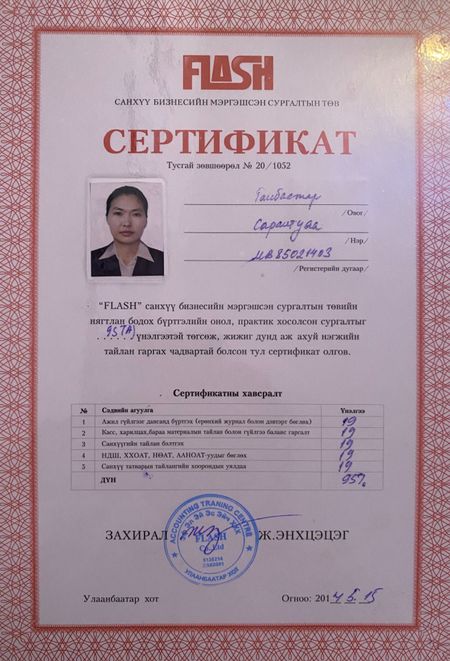 FLASH
САНХҮҮ БИЗНЕСИЙН МЭРГЭШСЭН СУРГАЛТЫН ТӨВ
СЕРТИФИКАТ
Тусгай зөвшөөрөл № 20/1052
Ганбаатар
/Овог/
Сарантуяа
/Нэр/
ИВ85021403
/Регистерийн дугаар/
“FLASH” санхүү бизнесийн мэргэшсэн сургалтын төвийн
нягтлан бодох бүртгэлийн онол, практик хосолсон сургалтыг
95 /А/ үнэлгээтэй төгсөж, жижиг дунд аж ахуй нэгжийн
тайлан гаргах чадвартай болсон тул сертификат олгов.
Сертификатны хавсралт
№ Сэдвийн агуулга Үнэлгээ
1 Ажил гүйлгээг дансанд бүртгэх (ерөнхий журнал болон дэвтэрт бөглөх) 19
2 Касс, харилцах, бараа материалын тайлан болон гүйлгээ баланс гаргалт 19
3 Санхүүгийн тайлан бэлтгэх 19
4 НДШ, ХХОАТ, НӨАТ, ААНОАТ-уудыг бөглөх 19
5 Санхүү татварын тайлангийн хоорондын уялдаа 19
ДҮН 95%
ACCOUNTING TRANING CENTRE
Эф Эл Эй Эс Эйч ХХК
FLASH
Co.,Ltd
УЛААНБААТАР ХОТ
ЗАХИРАЛ Ж.ЭНХЦЭЦЭГ
Улаанбаатар хот Огноо: 2014.5.15